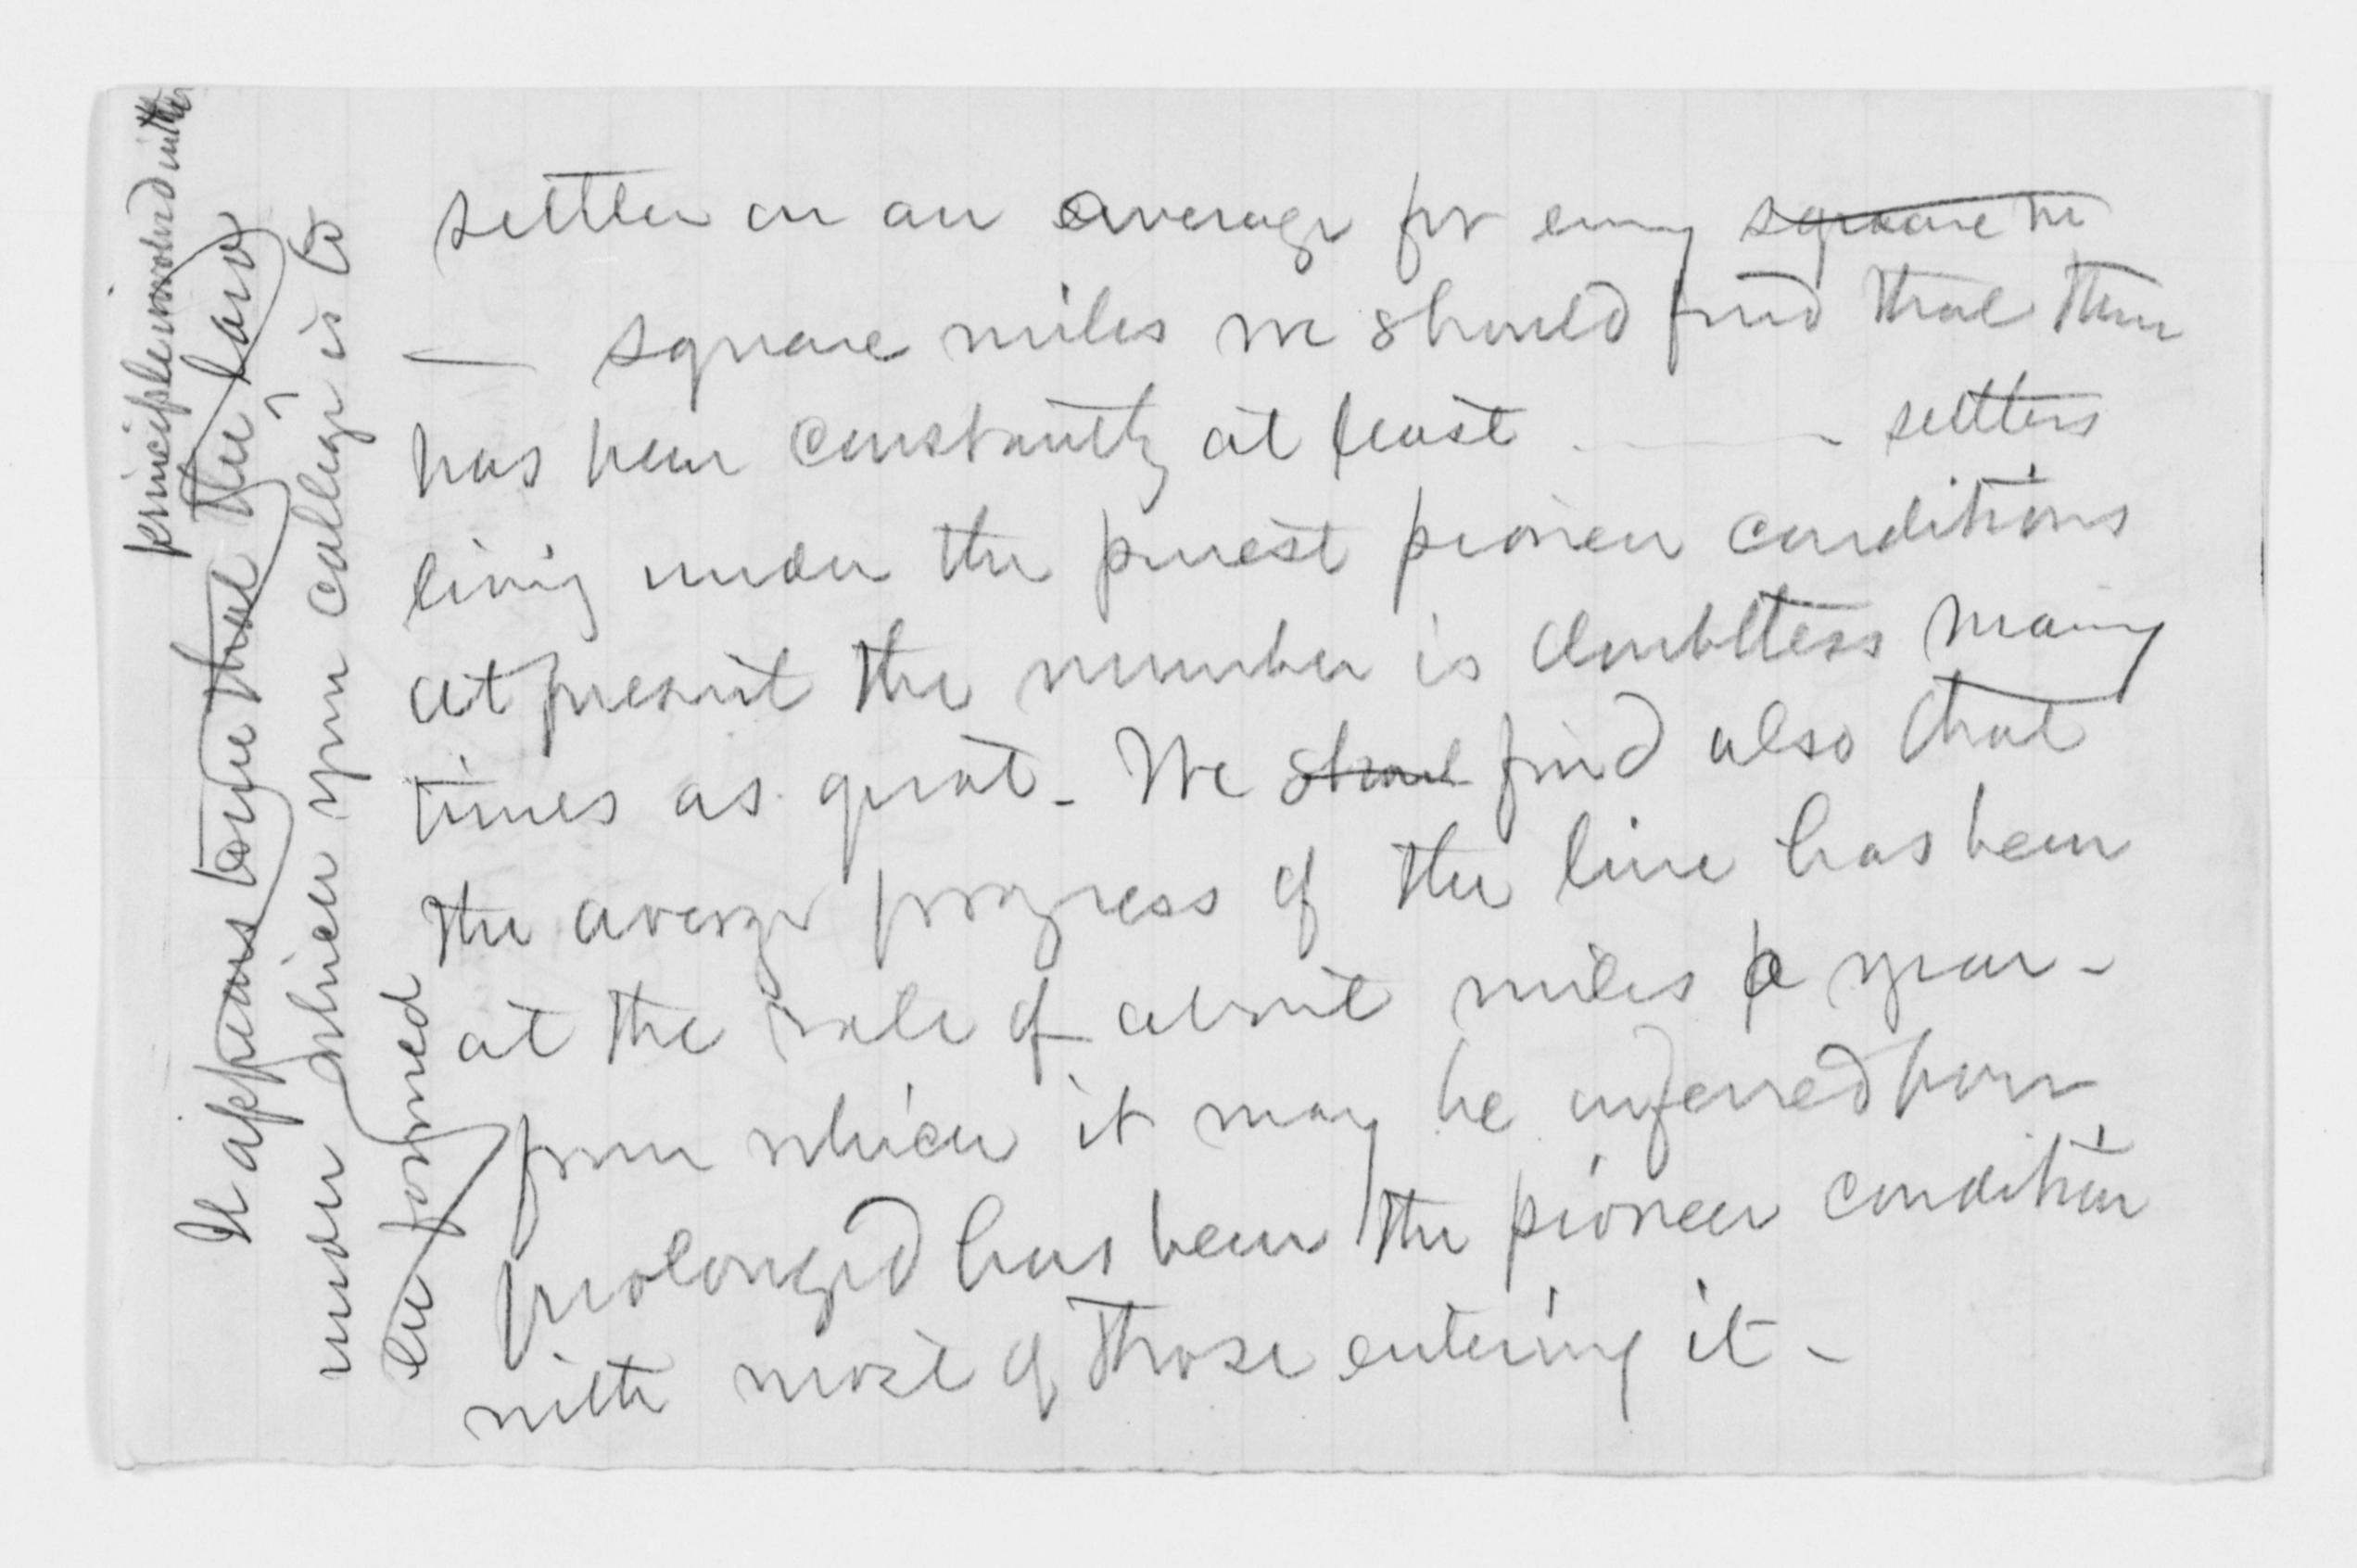 settler on an average for every square m
— square miles we should find that there
has been constantly at least ——— settlers
living under the purest pioneer conditions
at present the number is doubtless many
times as great. We shoul find also that
the average progress of the line has been
at the rate of about miles a year -
from which it may be inferred how
prolonged has been the pioneer condition
with most of those entering it -
principle involved in the
It appears to me that the law
under which your college is to
be formed